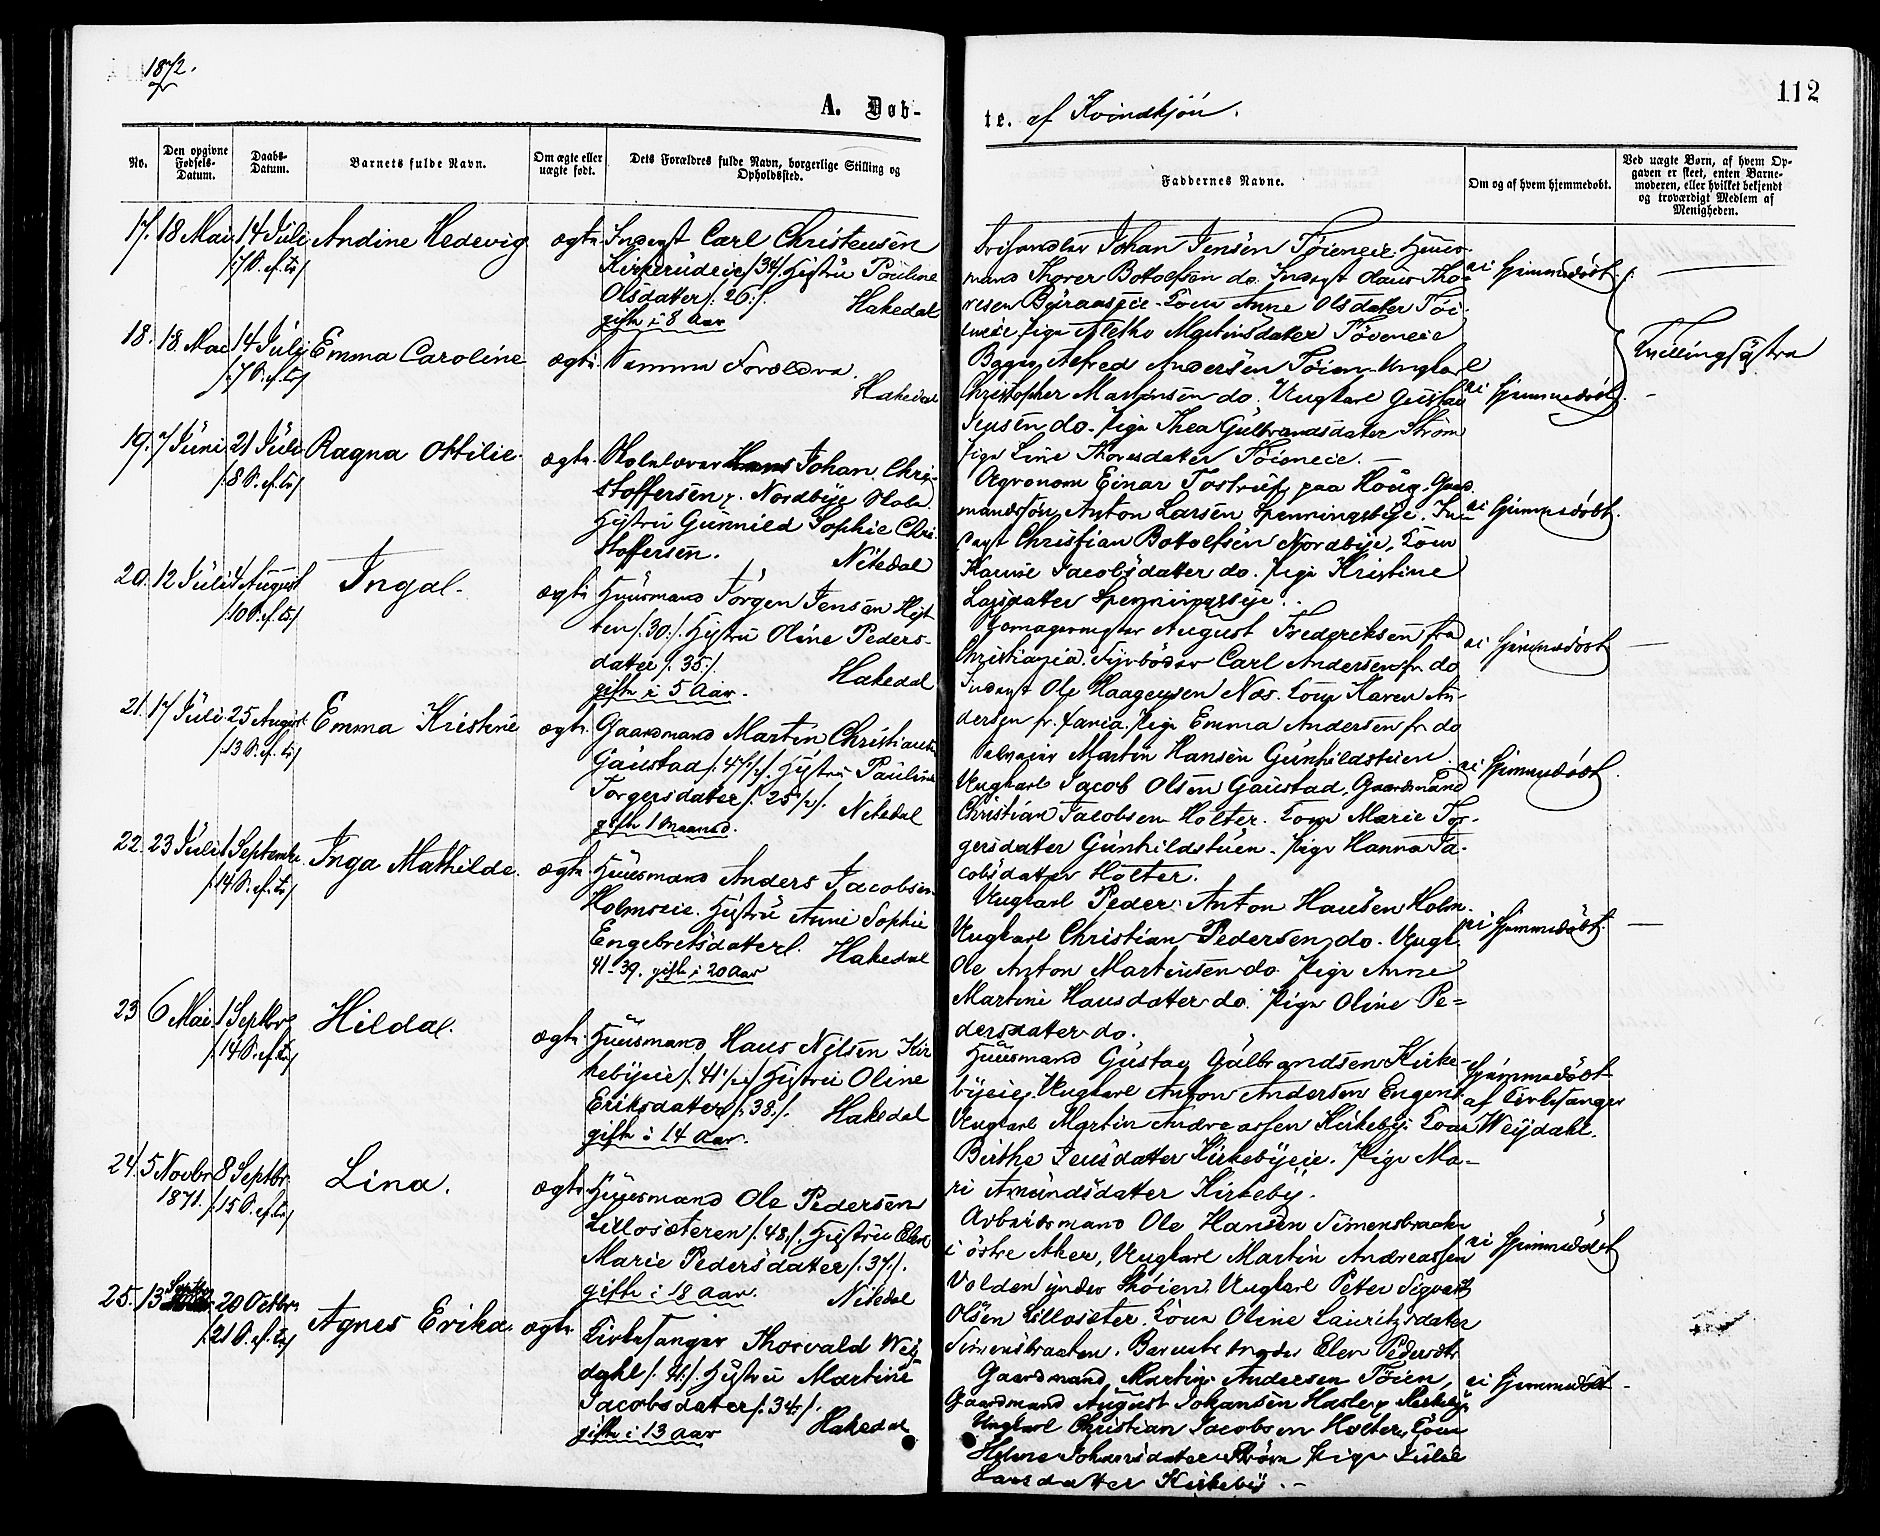 1872.
A. Døb-
No.
Den opgivne Fødsels-Datum.
Daabs-Datum.
Barnets fulde Navn.
Om ægte eller uægte født.
Dets Forældres fulde Navn, borgerlige Stilling og Opholdssted.
17. 18 Mai 14 Juli Andine Hedevig ægte Inderst Carl Christensen
/:7 S. ef. Tr/ Kirkerudeie /:34/. Hustru Pauline
Olsdatter /:26:/. Hakedal
gifte i 8 Aar
18. 18 Mai 14 Juli Emma Caroline ægte Samme Forældre.
/:7 S. ef. Tr/ Hakedal
19. 7 Juni 21 Juli Ragna Ottilie. ægte Skolelærer Hans Johan Chri-
/:8 S. ef. Tr/ stoffersen, Nordbye Skole.
Hustru Gunnild Sophie Chri-
stoffersen. Nitedal
20. 12 Juli 4 August Ingal. ægte Huusmand Jørgen Jensen
/:10 S. ef. Tr/ /:30:/. Hustru Oline Peders-
datter /:35:/. Hakedal
gifte i 5 Aar.
21. 17 Juli 25 August Emma Kristine ægte Gaardmand Martin Christiansen
/:13 S. ef. Tr/ Gaustad /:47/. Hustru Pauline
Torgersdatter /:25/. Nitedal
gifte 1 Maaned.
22. 23 Juli 1 Septembr. Inga Mathilde. ægte Huusmand Anders Jacobsen
/:14 S. ef. Tr/ Holmseie. Hustru Anne Sophie
Engebretsdatter/. Hakedal
41-39. gifte i 20 Aar
23 6 Mai 1 Septbr. Hildal. ægte. Huusmand Hans Nilsen Kir
/:14 S. ef. Tr/ kebyeie /:41/ Hustru Oline
Eriksdatter /:38:/. Hakedal
gifte i 14 Aar.
24. 5 Novbr 8 Septbr. Lina. ægte Huusmand Ole Pedersen
1871. /:15 S. ef. Tr/ Lillosæteren /:48:/. Hustru Elen
Marie Pedersdatter /:37/.
gifte i 18 Aar. Nitedal
25. 13 Septbr 20 Octbr. Agnes Erika. ægte Kirkesanger Thorvald Wey-
/:21 S. ef. Tr/ dahl /:41:/. Hustru Martine
Jacobsdatter /:34/.
gifte i 13 Aar Hakedal
112
te. af Kvindkjøn.
Faddernes Navne.
Om og af hvem hjemmedøbt.
Ved uægte Børn, af hvem Opgaven er skeet, enten Barnemoderen, eller hvilket bekjendt og troværdigt Medlem af Menigheden.
Johan Jensen Tøieneie. Huus-
mand Thorer Botolfsen do. Inderst Claus Tho- ei hjemmedøbt.
resen Byraaseie. Kone Anne Olsdater Tøi-
eneie, Pige Alethe Martinsdater Tøieneie
Bager Alfred Andersen Tøien. Ungkarl
Tvillingsøstre
Christopher Martinsen do. Ungkarl Gustav ei hjemmedøbt.
Jensen do. Pige Thea Gulbrandsdater Strøm
Pige Line Thoresdater Tøieneie.
Agronom Einar Tostrup paa Houg. Gaard-
mandssøn Anton Larsen Spenningsbye. In- ei hjemmedøbt.
derst Christian Botolfsen Nordbye. Kone
Jacobsdatter do. Pige Kristine
Larsdatter Spenningsbye.
August Frederiksen fra
Christiania. Fyrbøder Carl Andersen fr. do ei hjemmedøbt
Inderst Ole Haagensen Næs. Kone Karen An-
dersen fr. Xania. Pige Emma Andersen fr. do
Selveier Martin Hansen Gunhildstuen.
Ungkarl Jacob Olsen Gaustad, Gaardmand ei hjemmedøbt.
Christian Jacobsen Holter. Kone Marie Tor-
gersdatter Gunhildstuen. Pige Hanna Ja-
cobsdatter Holter.
Ungkarl Peder Anton Hansen Holm.
Ungkarl Christian Pedersen do. Ungk. ei hjemmedøbt.
Ole Anton Martinsen do. Pige Anne
Martine Hansdatter do. Pige Oline Pe=
dersdatter do.
Huusmand Gustav Gulbrandsen Kirke- hjemmedøbt
byeie, Ungkarl Anton Andersen Engen. af Kirkesanger
Ungkarl Martin Andreassen Kirkeby. Kone Weydahl.
Birthe Jensdatter Kirkebyeie. Pige Ma-
ri Amundsdatter Kirkeby.
Arbeidsmand Ole Hansen Simensbraaten
i østre Aker, Ungkarl Martin Andreassen ei hjemmedøbt
Volden under Skøien. Ungkarl Peter Sigvart
Olsen Lillosæter. Kone Oline Lauritzdater
Simensbraaten. Barnets Moder Elen Pedersdtr
Gaardmand Martin Andersen Tøien, ei hjemmedøbt
Gaardmand August Johansen Hasle, Kirkeby.
Ungkarl Christian Jacobsen Holter, Kone
Helene Johannesdater Strøm Pige Julie
Larsdatter Kirkeby.